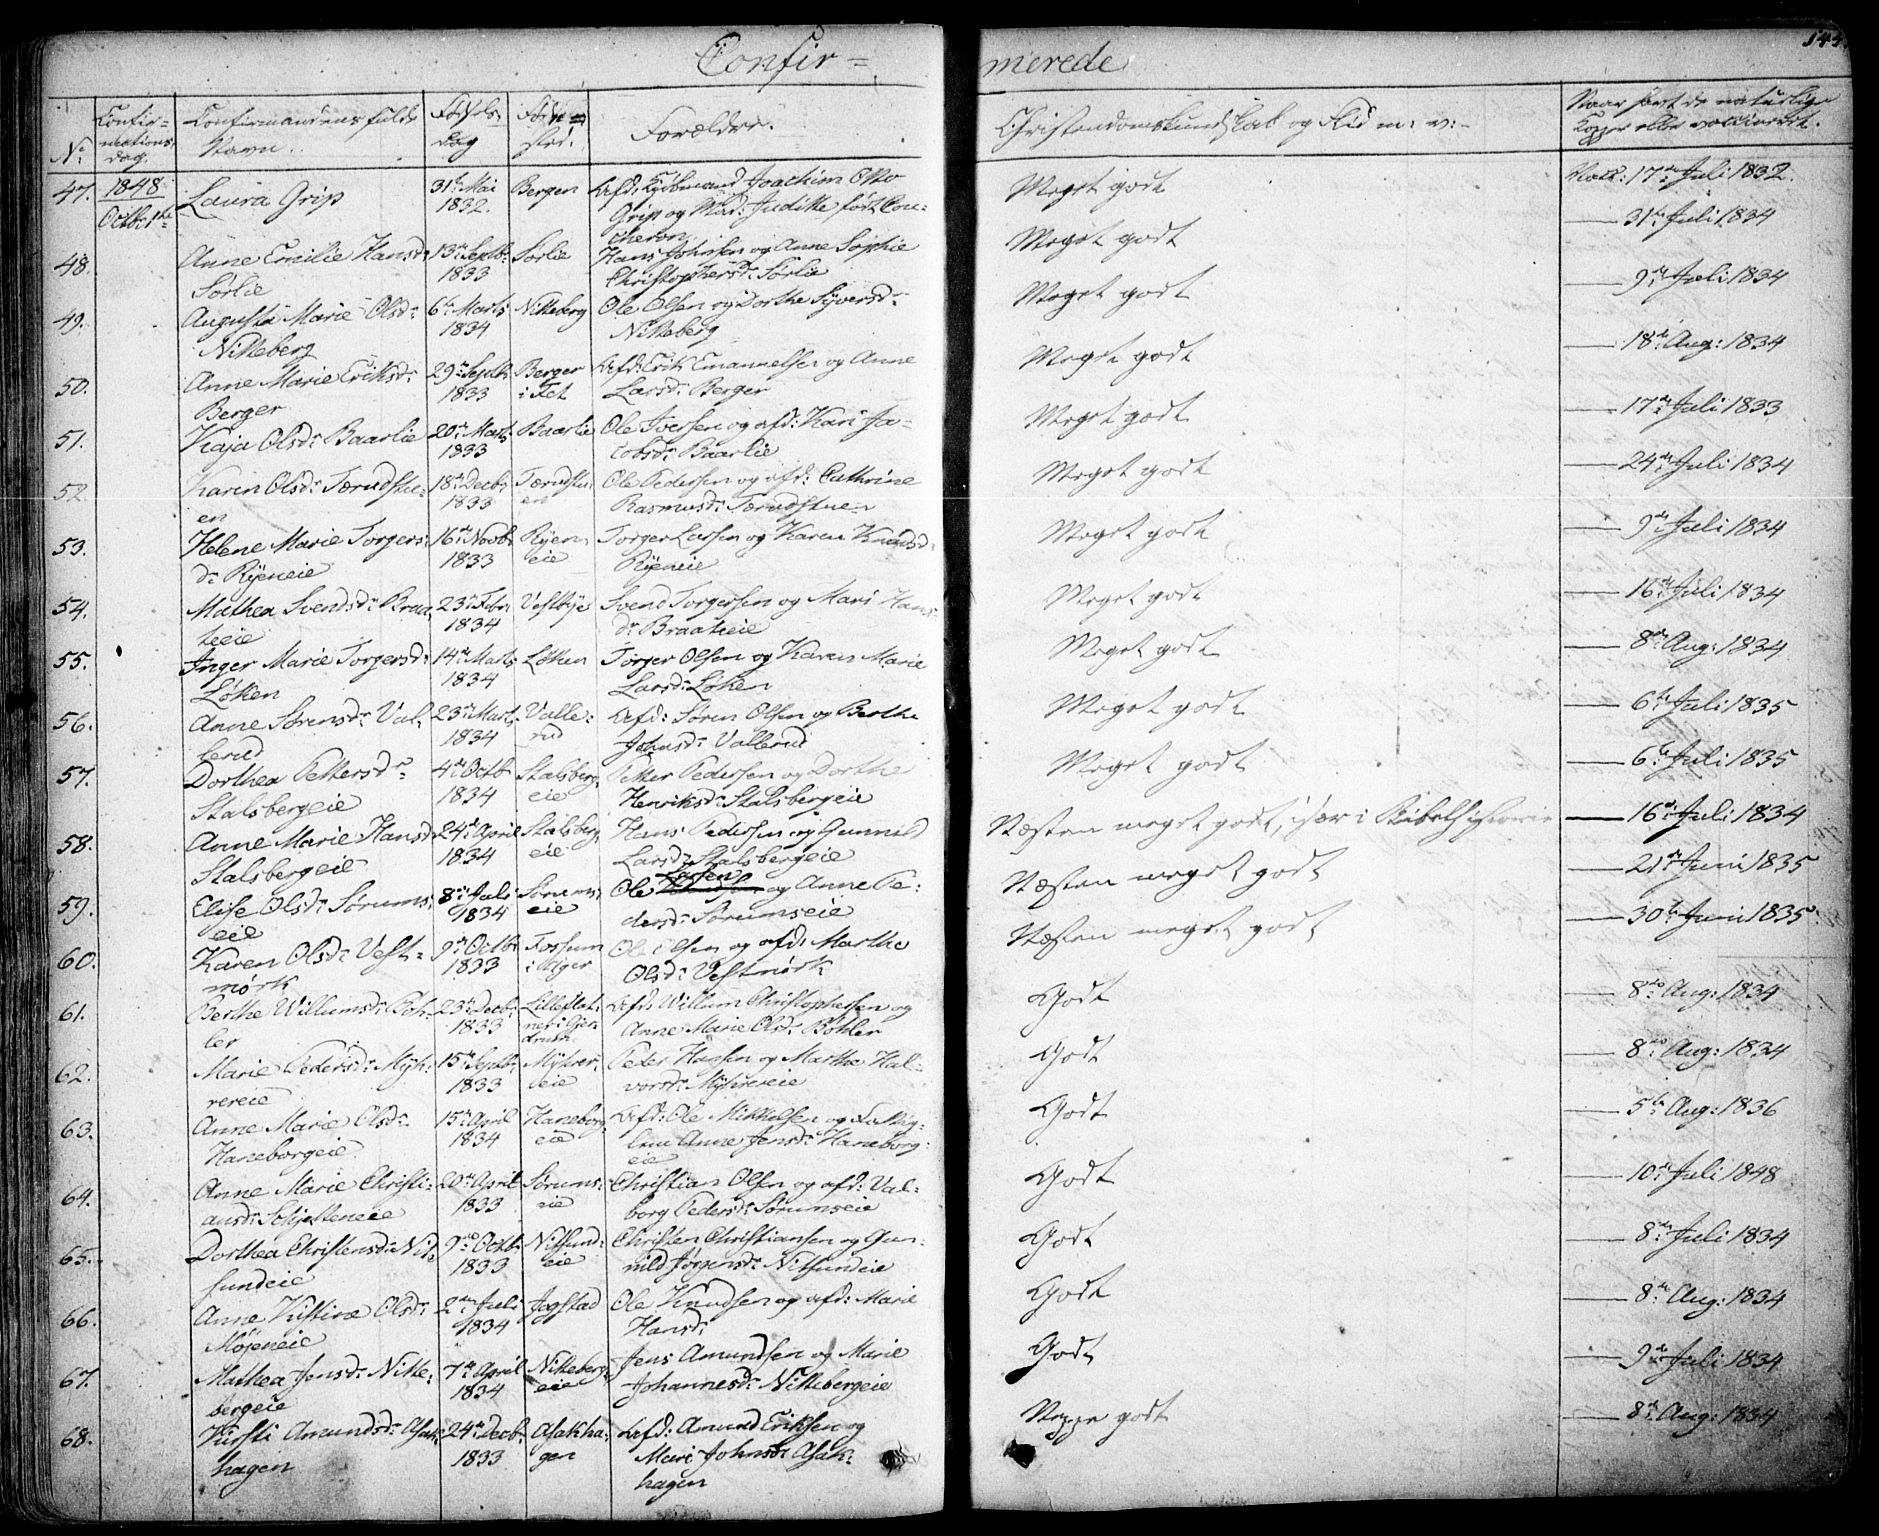 144.
Confir = merede
N: Confirmations dag. Confirmandens fulde Navn. Fødsels dag Fødested. Forældre. Christendomskundskab og Flid m: v:- Naar havt de naturlige Kopper eller vaccineret.
47. 1848 Octbr 1ste Laura Grip 31te Mai 1832. Bergen Afd: Kjøbmand Joachim Otto Grip og Mad: Judithe født Coucheron Meget godt Vacc: 17de Juli 1832.
48. Anne Emilie Hansdr Sørlie 13de Septbr 1833 Sørlie Hans Johnsen og Anne Sophie Christophersdr Sørlie Meget godt — 31te Juli 1834
49. Augusta Marie Olsdr Nitteberg 6te Marts 1834 Nitteberg Ole Olsen og Dorthe Syversdr Nitteberg Meget godt — 9de Juli 1834
50. Anne Marie Eriksdr Berger 29de Septb 1833 Berger i Fet Afd: Erik Emannelsen og Anne Larsdr Berger Meget godt — 18de Aug: 1834
51. Kaja Olsdr Baarlie 20de Marts 1833 Baarlie Ole Iversen og afd: Kari Jacobsdr Baarlie Meget godt — 17de Juli 1833
52. Karen Olsdr Tærudstuen 18de Decbr 1833 Tærudstuen Ole Pedersen og afd: Cathrine Rasmusdr Tærudstuen Meget godt — 24de Juli 1834
53. Helene Marie Torgersdr Ryeneie 16de Novbr 1833 Ryeneie Torger Larsen og Karen Knudsdr Ryeneie Meget godt — 9de Juli 1834
54. Mathea Svendsdr Braateeie 23de Febr 1834 Vestbye Svend Torgersen og Mari Hansdr Braateeie Meget godt — 16de Juli 1834
55. Inger Marie Torgersdr Løken 14de Marts 1834 Løken Torger Olsen og Karen Marie Larsdr Løken Meget godt — 8de Aug: 1834
56. Anne Sørensdr Vallerud 23de Marts 1834 Vallerud Afd: Søren Olsen og Berthe Johnsdr Vallerud Meget godt — 6te Juli 1835
57. Dorthea Pettersdr Stalsbergeie 4de Octb 1834 Stalsbergeie Petter Pedersen og Dorthe Henriksdr Stalsbergeie Meget godt — 6te Juli 1835
58. Anne Marie Hansdr Stalsbergeie 24de April 1834 Stalsbergeie Hans Pedersen og Gunnild Larsdr Stalsbergeie Næsten meget godt, især i Bibelhistorie — 16de Juli 1834
59. Elise Olsdr Sørumseie 8de Juli 1834 Sørumseie Ole Larsen og Anne Pedersdr Sørumseie Næsten meget godt — 21de Juni 1835
60. Karen Olsdr Vestmørk 9de Octbr 1833 Fossum i Høger Ole Olsen og afd: Marthe Olsdr Vestmørk Næsten meget godt — 30te Juni 1835
61. Berthe Willumsdr Bøhler 23de Decbr 1833 Lilleflatner i Gjerdrum Afd: Willum Christophersen og Anne Marie Olsdr Bøhler Godt — 8de Aug: 1834
62. Marie Pedersdr Myhrereie 15de Septbr 1833 Myhrereie Peder Hansen og Marthe Halvorsdr Myhrereie Godt — 8de Aug: 1834
63. Anne Marie Olsdr Haneborgeie 15de April 1834 Haneborgeie Afd: Ole Mikkelsen og Fattiglem Anne Jensdr Haneborgeie Godt — 5te Aug: 1836
64. Anne Marie Christiansdr Schjetteneie 20de April 1833 Sørumseie Christian Olsen og afd: Valborg Pedersdr Sørumseie Godt — 10de Juli 1848
65. Dorthea Christensdr Nitsundeie 9de Octbr 1833 Nitsundeie Christen Christiansen og Gunild Jørgensdr Nitsundeie Godt — 8de Juli 1834
66. Anne Kistine Olsdr Møjeneie 2den Juli 1834 Jogstad Ole Knudsen og afd: Marie Hansdr Godt — 8de Aug: 1834
67. Mathea Jensdr Nittebergeie 7de April 1834 Nittebergeie Jens Amundsen og Marie Johannesdr Nittebergeie Godt — 9de Juli 1834
68. Kirsti Amundsdr Asakhagen 24de Decbr 1833 Asakhagen Afd: Amund Eriksen og Mari Johnsdr Asakhagen Neppe godt — 8de Aug: 1834